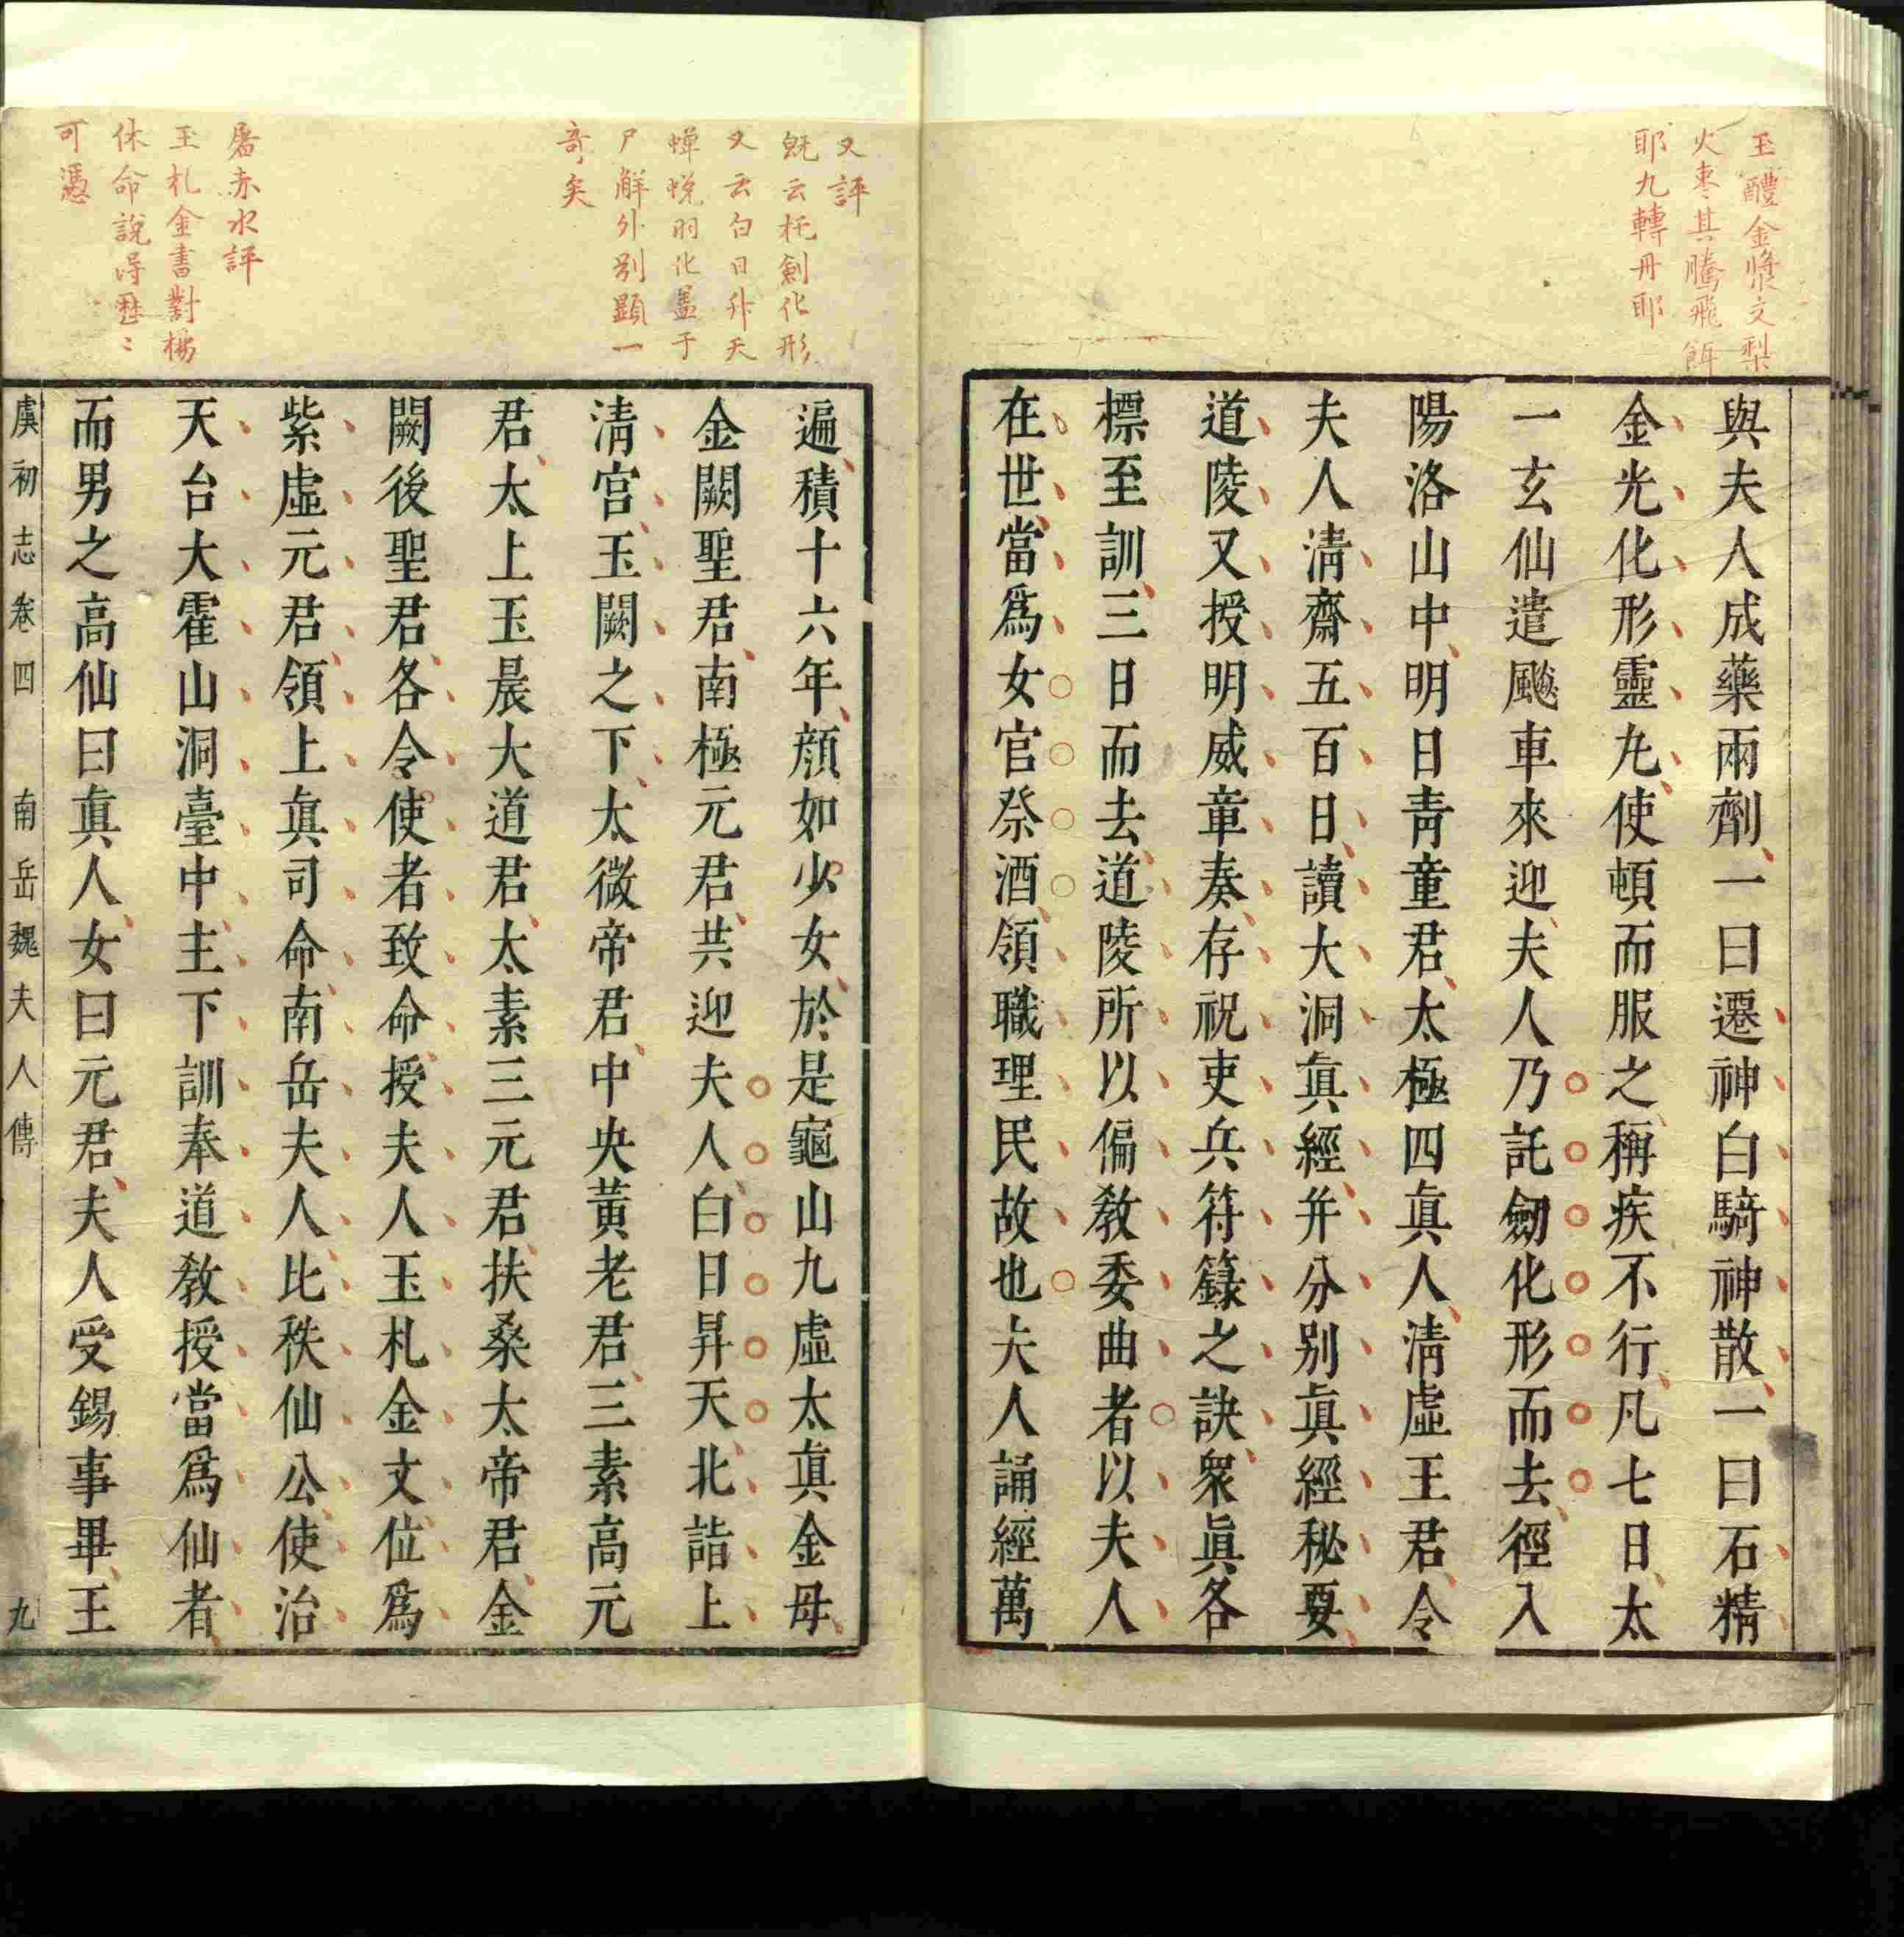 玉醴金漿交梨
火棗其騰飛餌
耶九轉丹耶
與夫人成藥兩劑一曰遷神白騎神散一曰石精
金光化形靈丸使頓而服之稱疾不行凡七日太
一玄仙遣飈車來迎夫人乃託劒化形而去徑入
陽洛山中明日青童君太極四眞人清虛王君令
夫人清齋五百日讀大洞眞經幷分別眞經秘要
道陵又授明威章奏存祝吏兵符籙之訣衆眞各
標至訓三日而去道陵所以偏教委曲者以夫人
在世當爲女官祭酒領職理民故也夫人誦經萬
又評
旣云托劍化形
又云白日升天
蟬蛻羽化盖于
尸解外別顯一
奇矣
屠赤水評
玉札金書對楊
休命說得歷〻
可憑
遍積十六年顔如少女於是龜山九虛太眞金母
金闕聖君南極元君共迎夫人白日昇天北詣上
清宮玉闕之下太微帝君中央黃老君三素高元
君太上玉晨大道君太素三元君扶桑太帝君金
闕後聖君各令使者致命授夫人玉札金文位爲
紫虛元君領上眞司命南岳夫人比秩仙公使治
天台大霍山洞臺中主下訓奉道教授當爲仙者
而男之高仙曰眞人女曰元君夫人受錫事畢王
虞初志卷四 南岳魏夫人傳 九